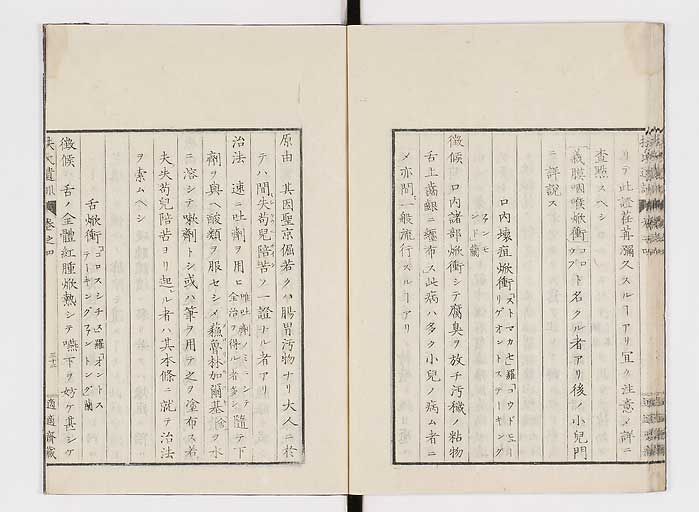 リテ此證荏苒彌久スルヿアリ宜ク注意メ詳ニ
査點スヘシ
義膜咽喉焮衝ト名クル者アリ後ノ小兒門
ニ詳説ス
口内壞疽焮衝
徴候 口内諸部焮衝シテ腐臭ヲ放チ汚穢ノ粘物
舌上齒齦ニ纏布ス此病ハ多ク小兒ノ病ム者ニ
メ亦間一般流行スルヿアリ
原由 其因聖京倔若クハ腸胃汚物ナリ大人ニ於
テハ間失苟兒陪苦ノ一證ナル者アリ
治法 速ニ吐劑ヲ用ヒ 唯吐劑ノミニシテ全治ヲ得ル者多シ 隨テ下
劑ヲ與ヘ酸類ヲ服セシメ 魯林加爾基 ヲ水
ニ溶シテ嗽劑トシ或ハ筆ヲ用テ之ヲ塗布ス若
夫失苟兒陪苦ヨリ起ル者ハ其本條ニ就テ治法
ヲ索ムヘシ
舌焮衝
徴候 舌ノ全體紅腫焮熱シテ嚥下ヲ妨ケ甚シケ
扶氏遺訓 卷之四 適適齋藏